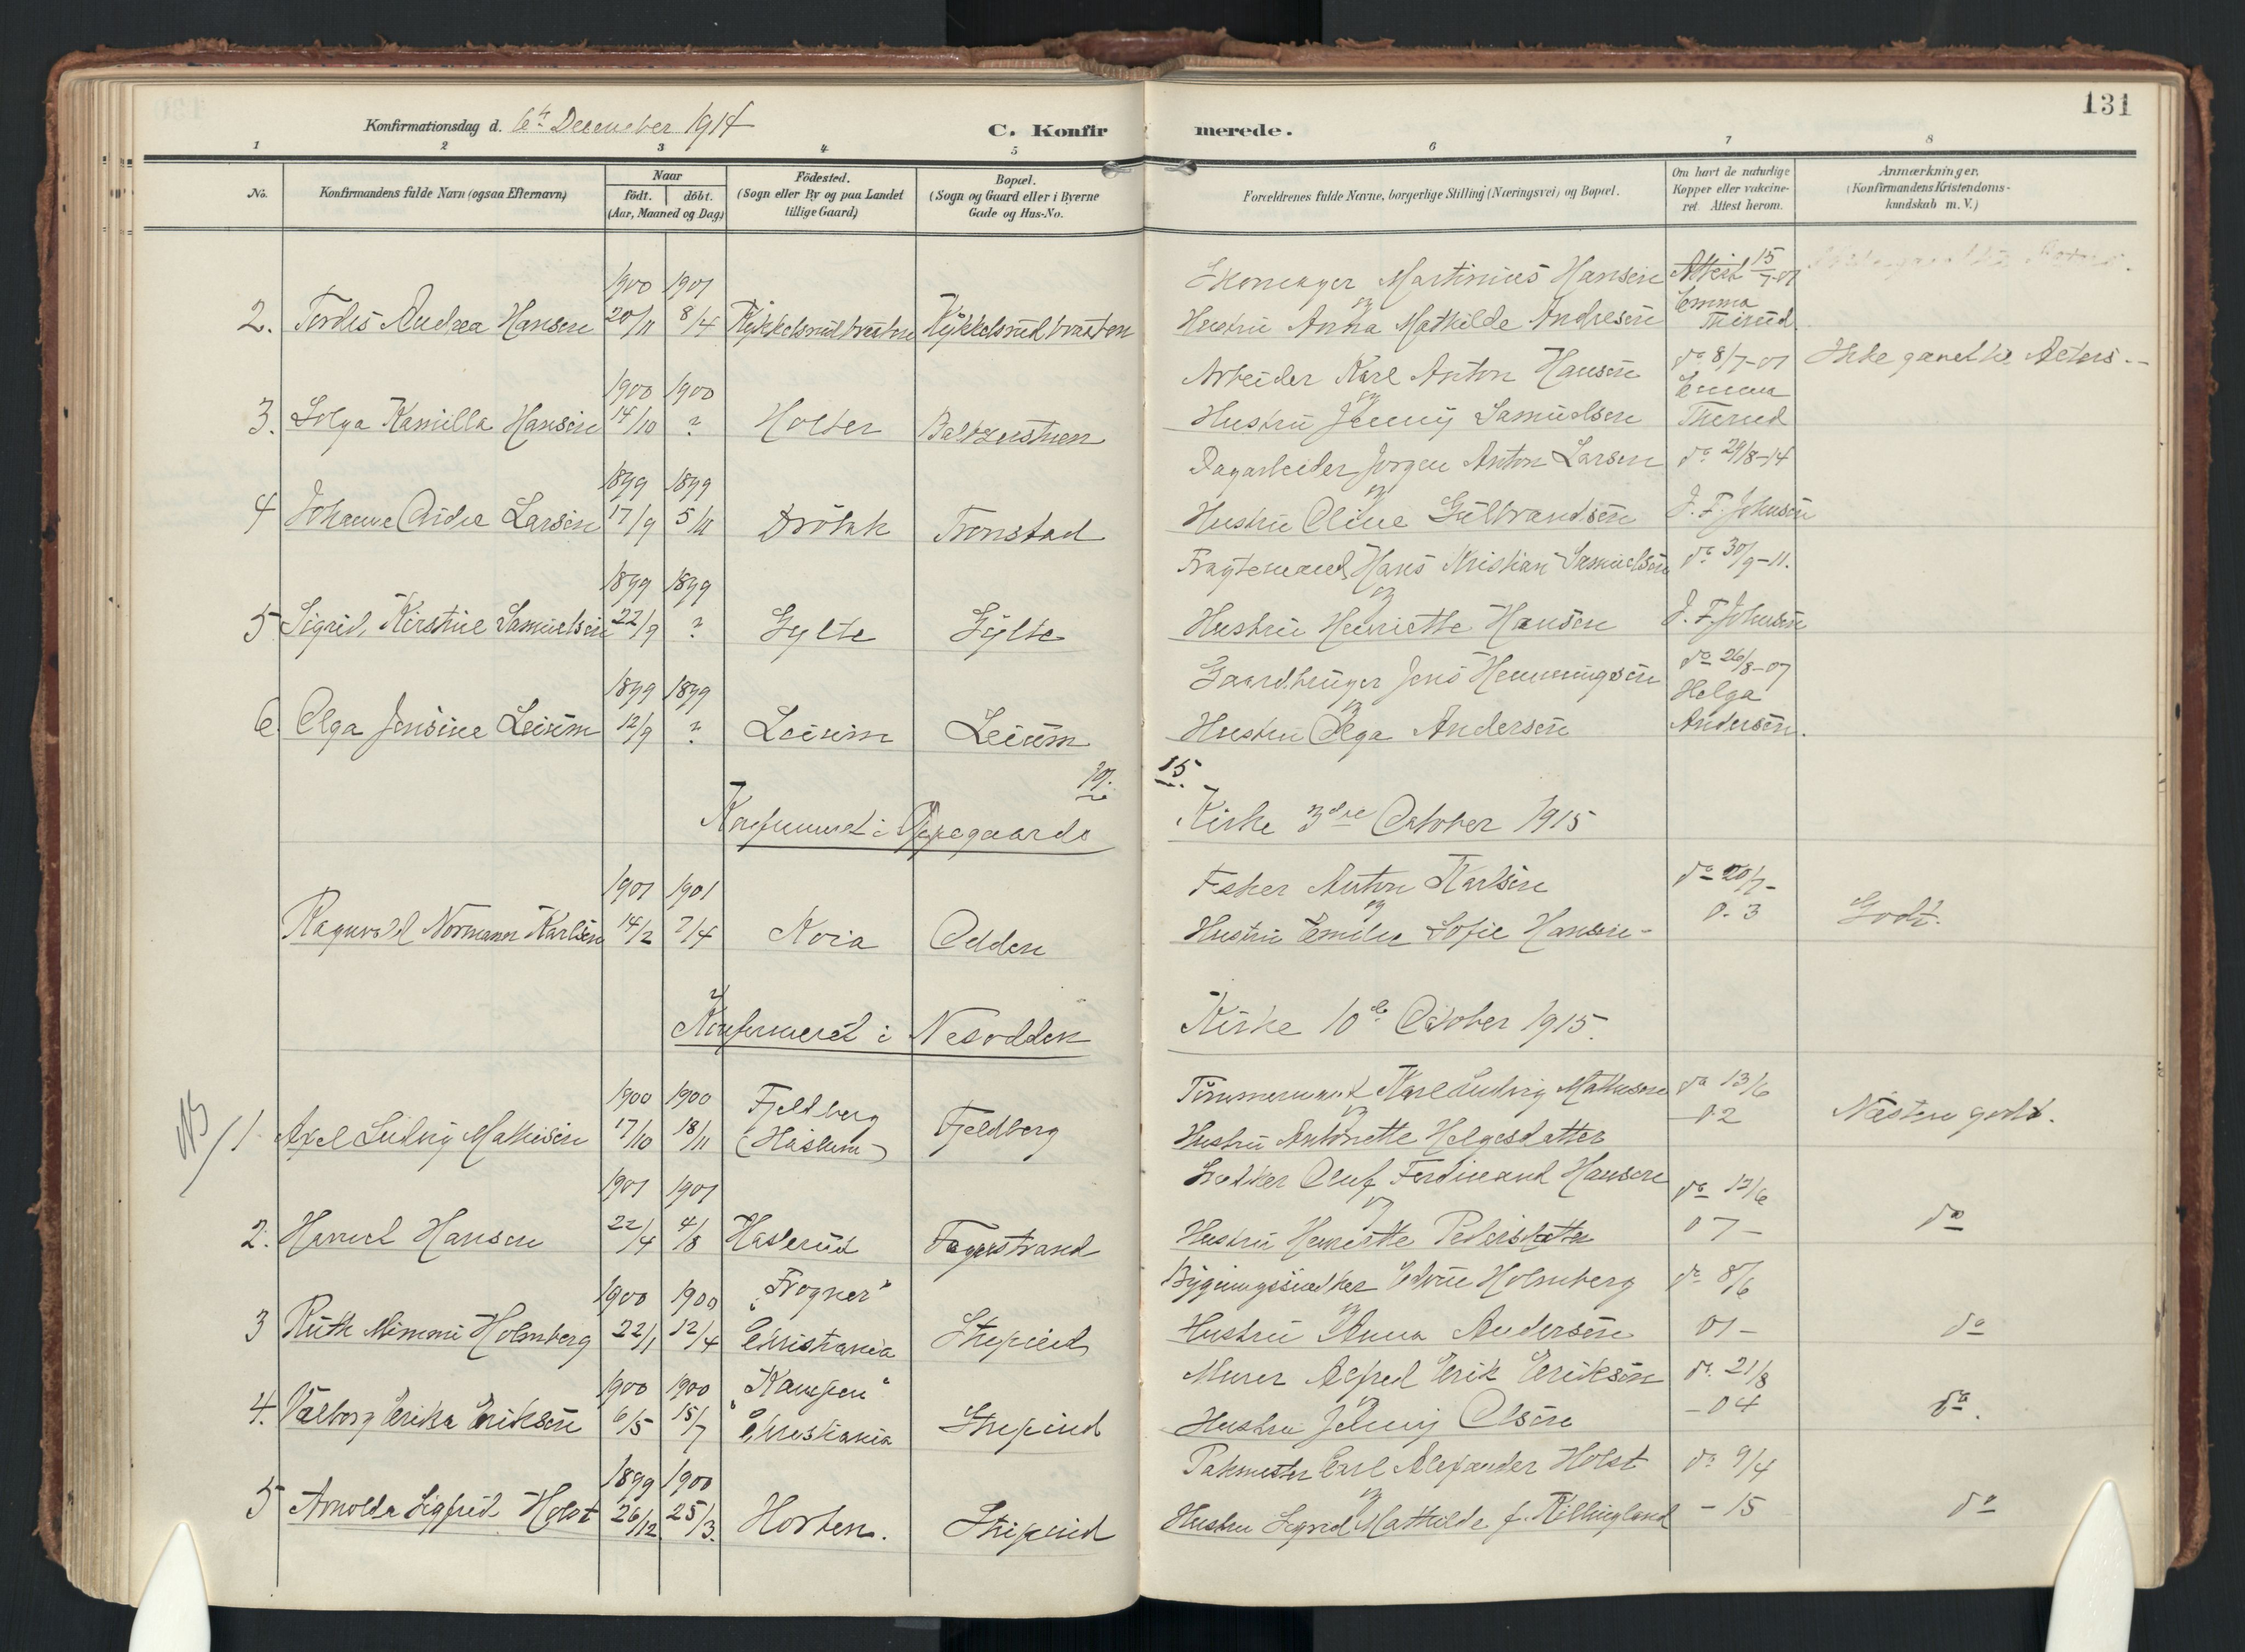 131
Konfirmationsdag d. 6te December 1914
C. Konfirmerede.
1 2 3 4 5 6 7 8
No.
Konfirmandens fulde Navn (ogsaa Efternavn)
Naar
födt. döbt.
(Aar, Maaned og Dag)
Födested.
(Sogn eller By og paa Landet
tillige Gaard)
Bopæl.
(Sogn og Gaard eller i Byerne
Gade og Hus-No.
Forældrenes fulde Navne, borgerlige Stilling (Næringsvei) og Bopæl.
Om havt de naturlige
Kopper eller vakcine-
ret. Attest herom.
Anmærkninger.
(Konfirmandens Kristendoms-
kundskab m. V.)
1900 1901 Skomager Martinius Hansen Attest 15/7-01
2. Tordis Andrea Hansen 20/11 8/4 Kjøkkelsrudbraaten Kjøkkelsrudbraaten og Hustru Anna Mathilde Andresen Emma Therud
1900 1900 Arbeider Karl Anton Hansen do 8/7-01 Ikke gaaet til Alters.
3. Solga Kamilla Hansen 14/10 ? Holter og Hustru Jenny Samuelsen Emma Therud
1899 1899 Dagarbeider Jørgen Anton Larsen do 29/8-14
4 Johanne Larsen 17/9 5/11 Drøbak Tronstad og Hustru Oline Gulbrandsen J. F. Johnsen
1899 1899 Fragtemand Hans Kristian Samuelsen do 30/9-11.
5 Sigrid Kirstine Samuelsen 22/9 ? Gylte Gylte og Hustru Henriette Hansen J. F. Johnsen
1899 1899 Gaardbruger Jens Henningsen do 26/8-07
6. Olga Jensine Leirum 12/9 ? Leirum Leirum og Hustru Olga Andersen Helga Andersen.
1915.
Konfirmeret i Oppegaards Kirke 3die October 1915
1901 1901 Fisker Anton Karlsen do 20/7-
Ragnvald Normann Karlsen 14/2 7/4 Odden og Hustru Emilie Sofie Hansen - 0.3 Godt.
Konfirmeret i Nesodden Kirke 10de October 1915.
NB
1900 1900 Fjeldberg Tømmermand Karl Ludvig Mathisen do 13/6
1. Axel Ludvig Mathisen 17/10 18/11 (Haslum) Fjeldberg og Hustru Antonette Helgesdatter -02 Næsten godt.
1901 1901 Snedker Oluf Ferdinand Hansen do 12/6
2. Hansen 22/4 4/8 Haslerud Fagerstrand og Hustru Henriette Pedersdatter 07- do
1900 1900 "Frogner" Bygningssnedker Edvin Holmberg do 8/6
3 Ruth Mimmi Holmberg 22/1 12/4 Christiania og Hustru Anna Andersen 01- do
1900 1900 "Kampen" Murer Alfred Erik Eriksen do. 21/8
4. Valborg Erika Eriksen 6/5 15/7 Christiania og Hustru Jenny Olsen -04 do.
1899 1900 Pakmester Carl Alexander Holst do 9/4
5 Arnolda Sigfrid Holst 26/12 25/3. Horten. og Hustru Sigrid Mathilde f. Killingland -15 do